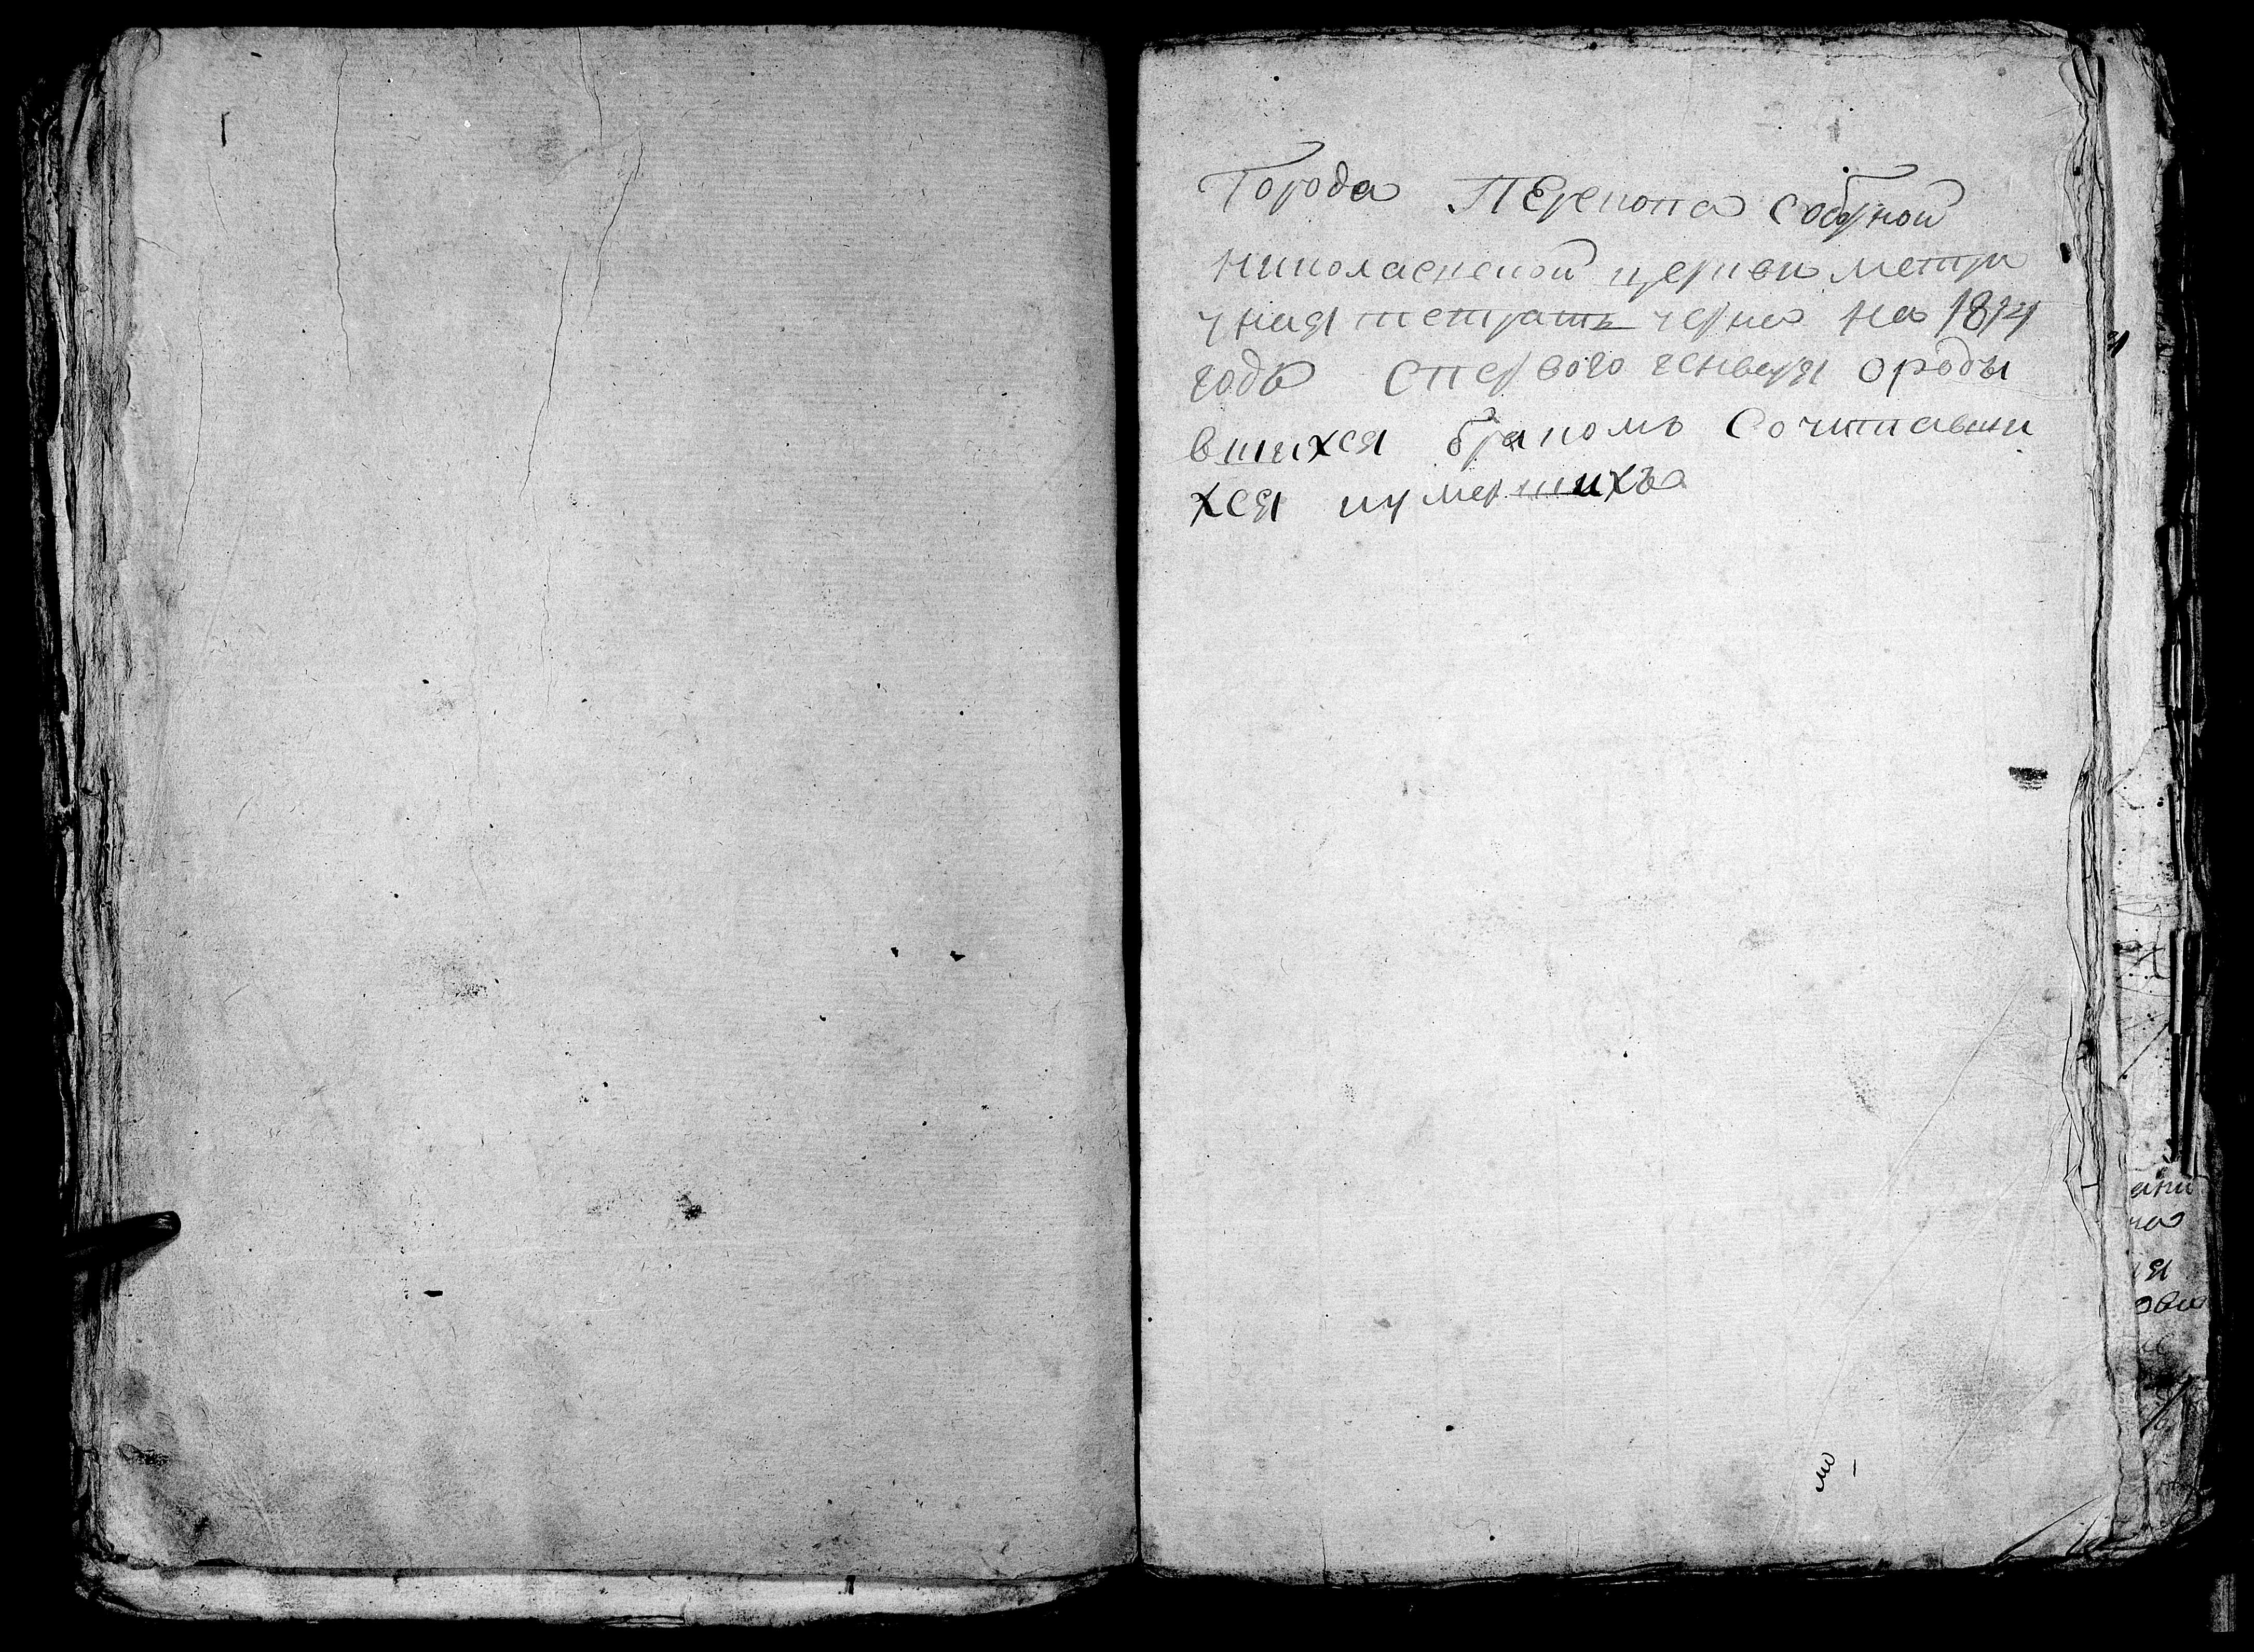 Города Перекопа соборной
николаевской церкви метри
чная тетрать черна на 1814
года Спервого генваря ороды
вшихся браком Сочитавши
хся иумершихъ